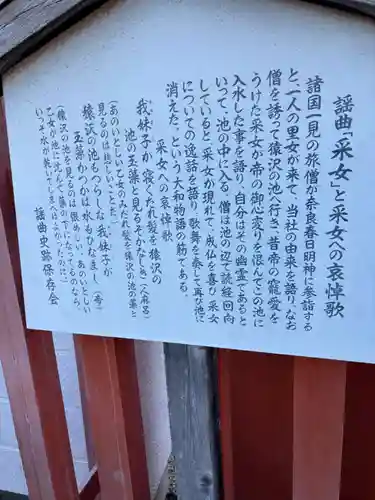 謡曲「采女」と采女への哀悼歌
諸国一見の旅僧が奈良春日明神に参詣する
と、一人の里女が来て、当社の由来を語り、なお
僧を誘って猿沢の池へ行き、昔帝の寵愛を
うけた采女が帝の御心変りを恨んでこの池に
入水した事を語り、自分はその幽霊であると
いって、池の中に入る。僧は池の辺で読経回向
していると采女が現れて、成仏を喜び采女
についての逸話を語り、歌舞を奏して再び池に
消えた、という大和物語の筋である。
采女への哀悼歌
我妹子が寝くたれ髪を猿沢の
池の玉藻と見るぞかなしき(人麻呂)
(あのいとしい乙女のみだれ髪を猿沢の池の藻と
見るのは悲しいことだ)
猿沢の池もつらしな我妹子が
玉藻かつがば水もひなまし(帝)
(猿沢の池を見るのは恨めしい、あのいとしい
乙女が池に沈んで藻の下になっているのなら、
いっそ水が乾いてしまえばよかったのに)
謡曲史跡保存会